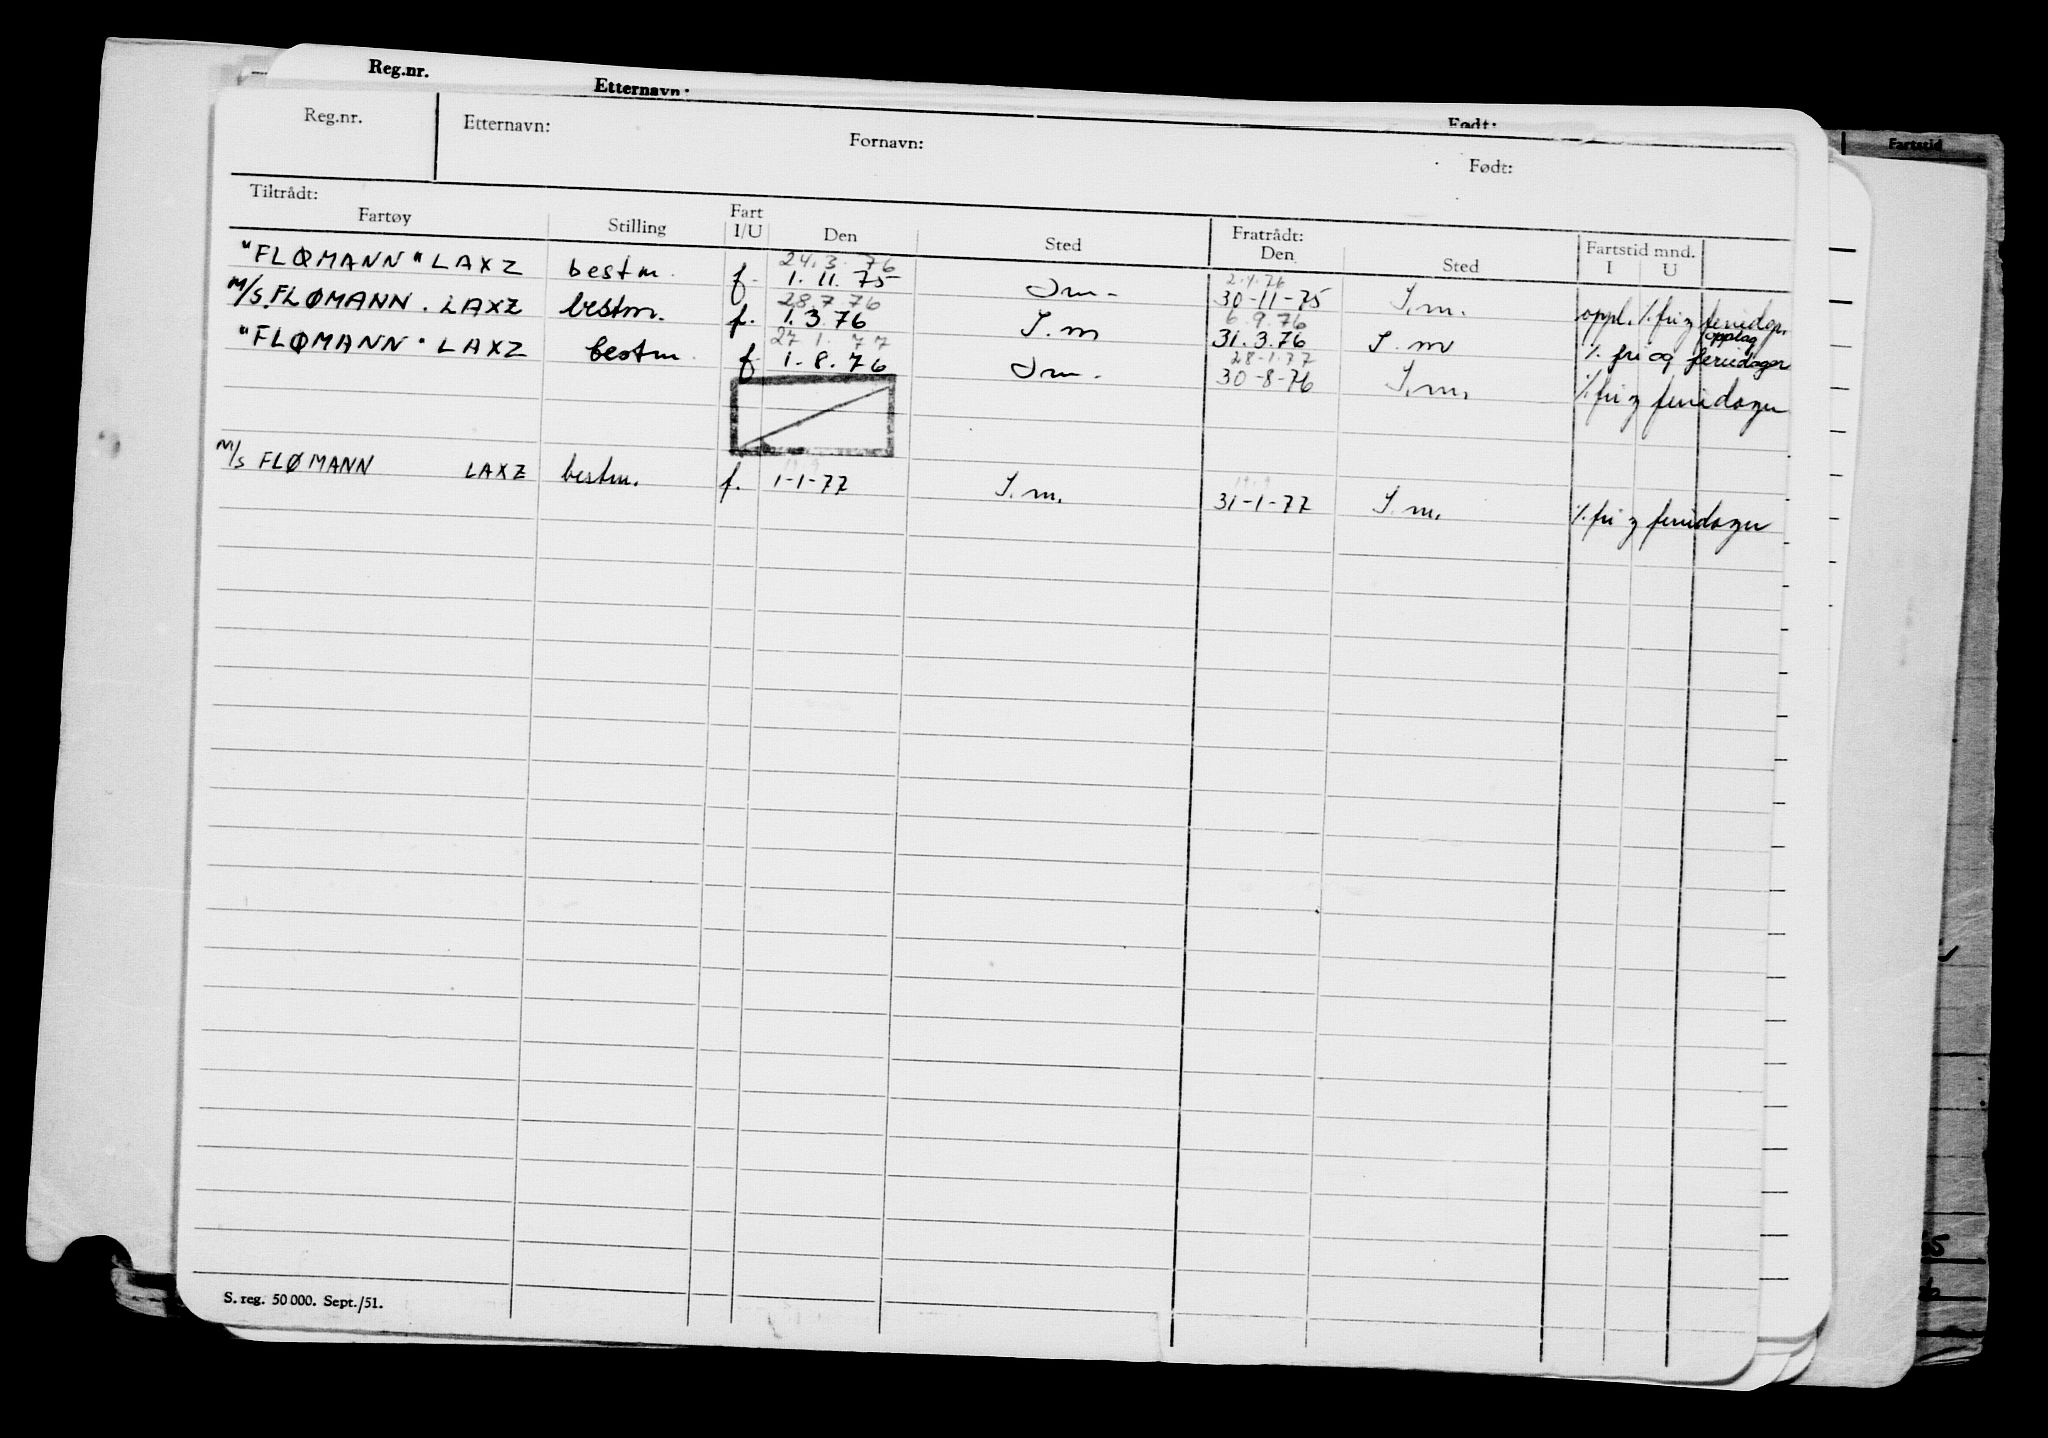 Reg.nr. Etternavn: Født: Fartstid
Reg.nr. Etternavn: Fornavn: Født:
Tiltrådt: Fratrådt:
Fartøy Stilling Fart I/U Den Sted Den Sted Fartstid mnd. I U
24.3.76 2.4.76
"FLØMANN" LAXZ bestm. f. 1.11.75 S.m. 30-11-75 S.m. oppl. %. fri og feriedag.
28.7.76 6.9.76 opplag
M/S. FLØMANN. LAXZ bestm. f. 1.3.76 S.m 31.3.76 S.m %. fri og feriedager
27.1.77 28-1-77
"FLØMANN" LAXZ bestm. f. 1.8.76 S.m. 30-8-76 S.m. %. fri og feriedager
M/S FLØMANN LAXZ bestm. f. 1-1-77 S.m. 31-1-77 S.m. %. fri og feriedager
S. reg. 50 000. Sept./51.